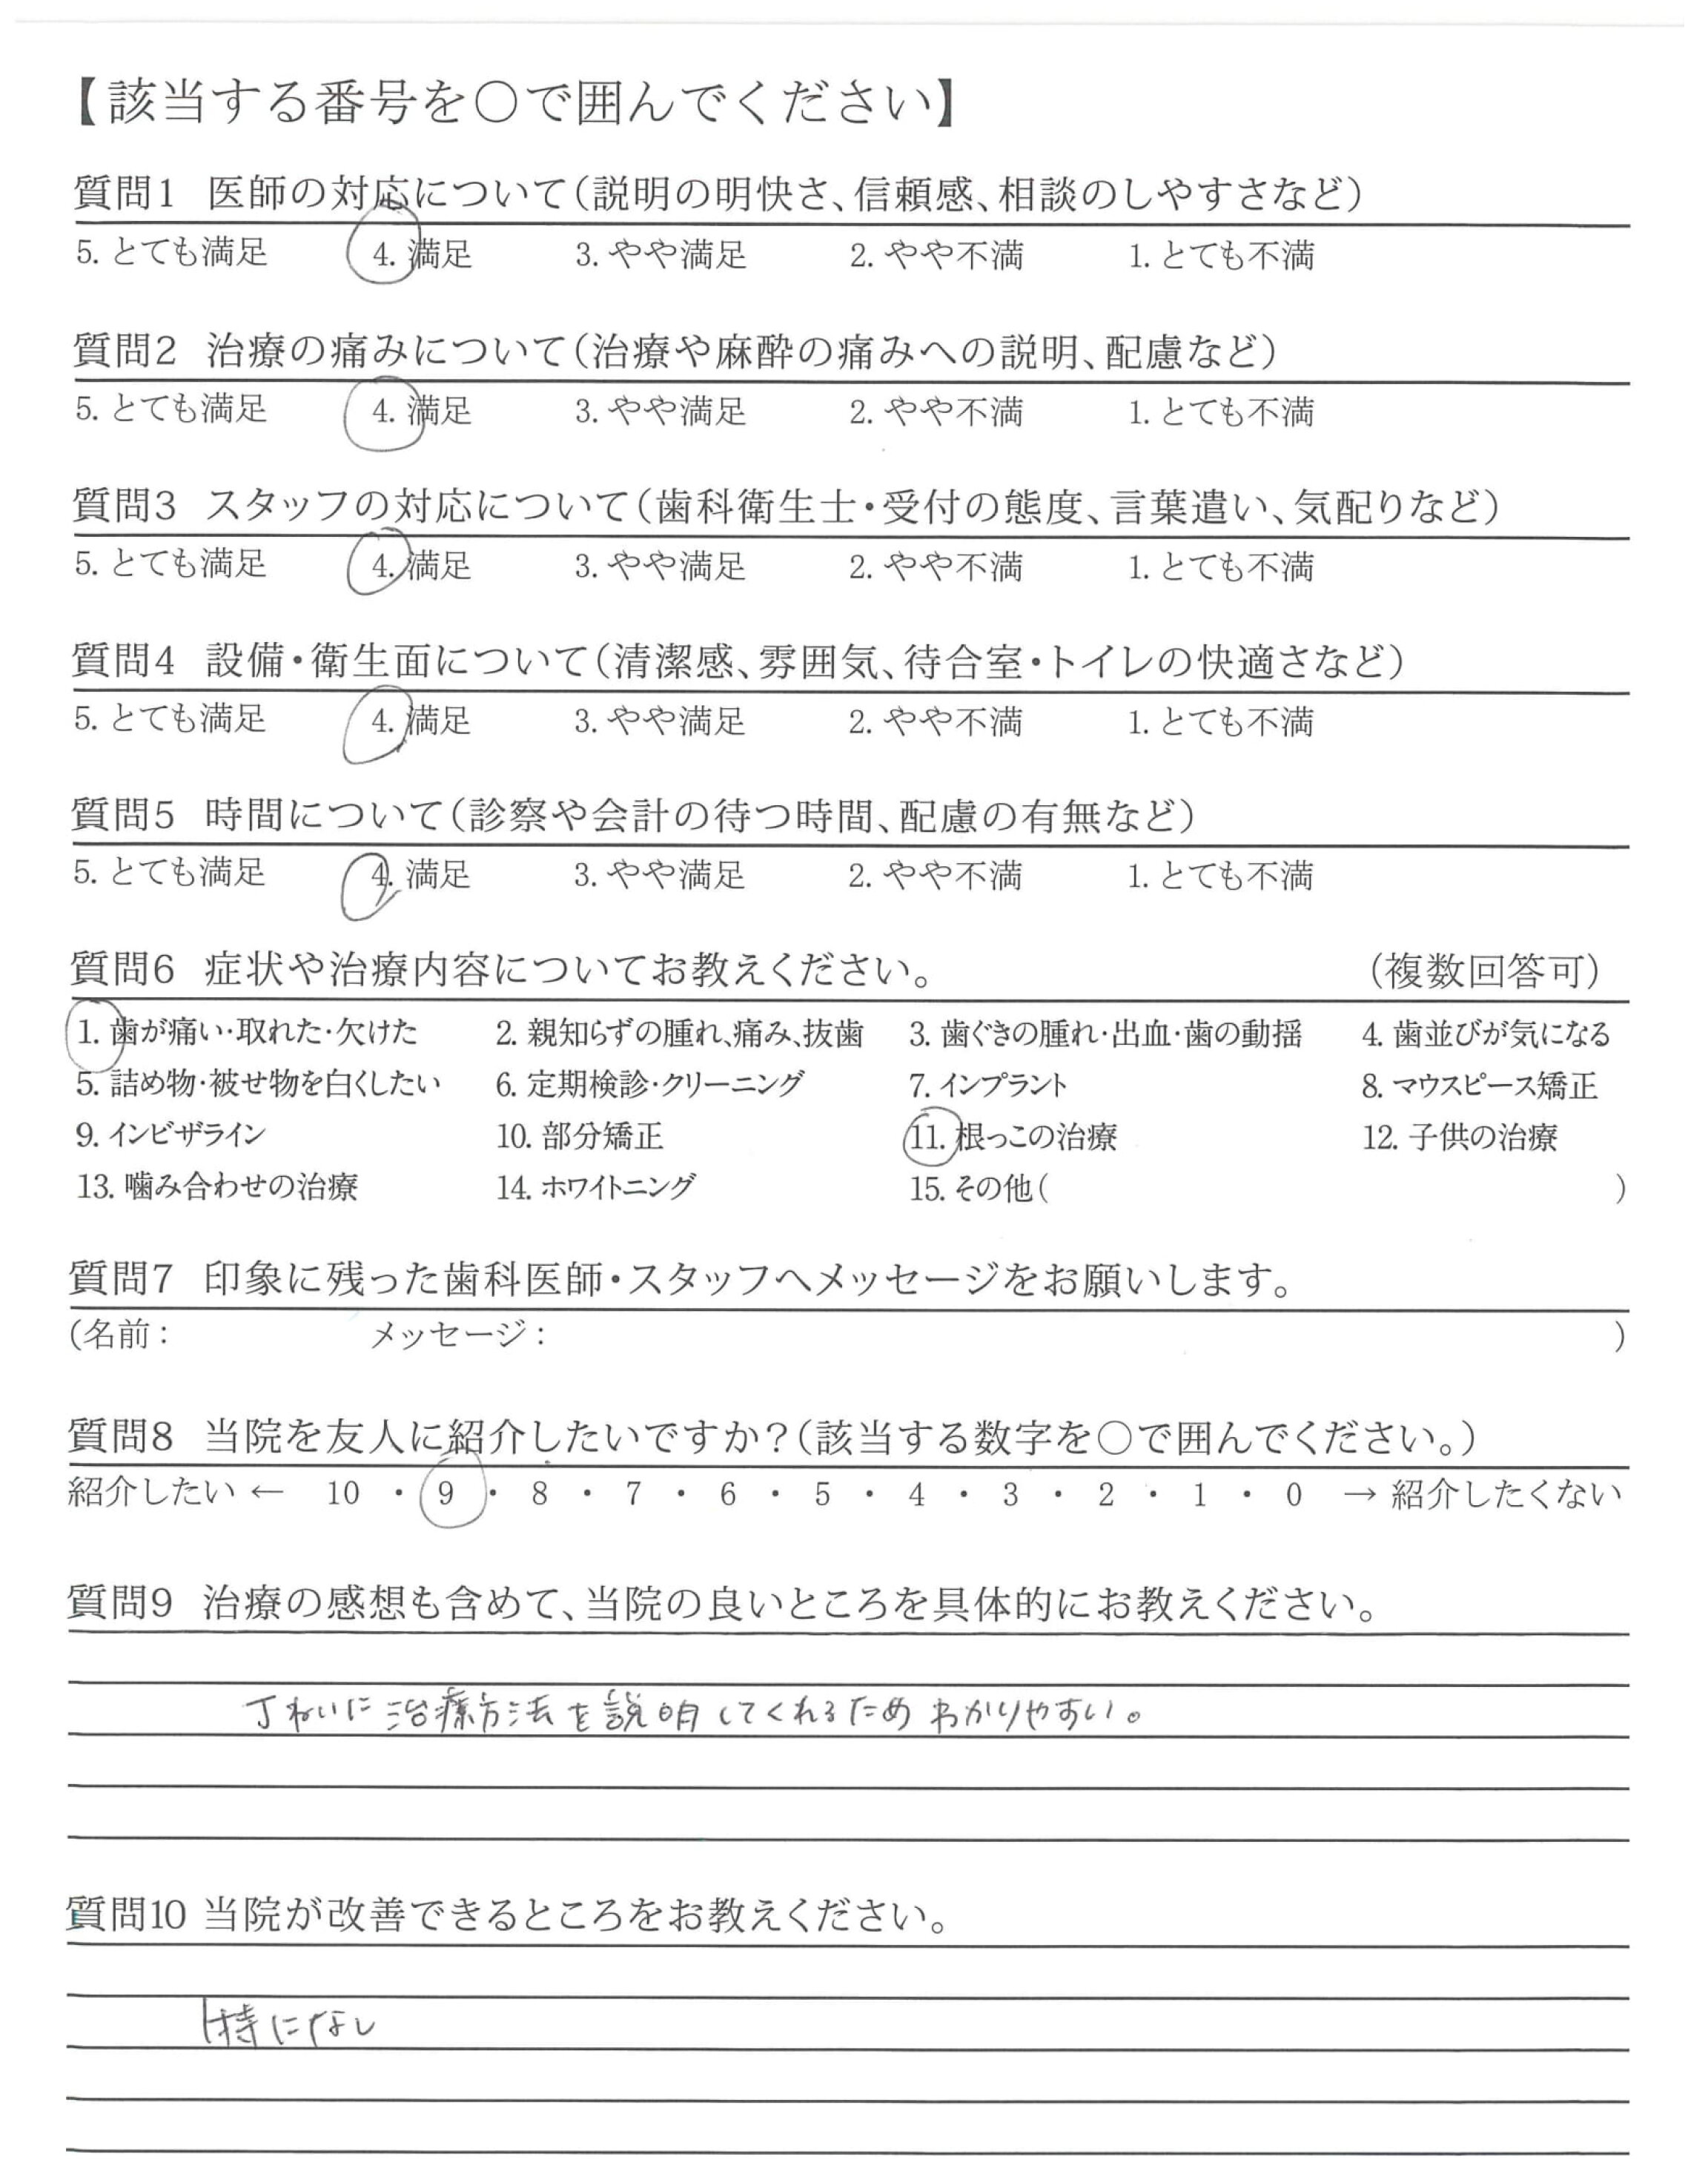 【該当する番号を○で囲んでください】
質問1 医師の対応について（説明の明快さ、信頼感、相談のしやすさなど）
5. とても満足 4. 満足 3. やや満足 2. やや不満 1. とても不満
質問2 治療の痛みについて（治療や麻酔の痛みへの説明、配慮など）
5. とても満足 4. 満足 3. やや満足 2. やや不満 1. とても不満
質問3 スタッフの対応について（歯科衛生士・受付の態度、言葉遣い、気配りなど）
5. とても満足 4. 満足 3. やや満足 2. やや不満 1. とても不満
質問4 設備・衛生面について（清潔感、雰囲気、待合室・トイレの快適さなど）
5. とても満足 4. 満足 3. やや満足 2. やや不満 1. とても不満
質問5 時間について（診察や会計の待つ時間、配慮の有無など）
5. とても満足 4. 満足 3. やや満足 2. やや不満 1. とても不満
質問6 症状や治療内容についてお教えください。 （複数回答可）
1. 歯が痛い・取れた・欠けた 2. 親知らずの腫れ、痛み、抜歯 3. 歯ぐきの腫れ・出血・歯の動揺 4. 歯並びが気になる
5. 詰め物・被せ物を白くしたい 6. 定期検診・クリーニング 7. インプラント 8. マウスピース矯正
9. インビザライン 10. 部分矯正 11. 根っこの治療 12. 子供の治療
13. 噛み合わせの治療 14. ホワイトニング 15. その他（ ）
質問7 印象に残った歯科医師・スタッフへメッセージをお願いします。
（名前： メッセージ： ）
質問8 当院を友人に紹介したいですか？（該当する数字を○で囲んでください。）
紹介したい ← 10 ・ 9 ・ 8 ・ 7 ・ 6 ・ 5 ・ 4 ・ 3 ・ 2 ・ 1 ・ 0 → 紹介したくない
質問9 治療の感想も含めて、当院の良いところを具体的にお教えください。
丁ねいに治療方法を説明してくれるためわかりやすい。
質問10 当院が改善できるところをお教えください。
特になし